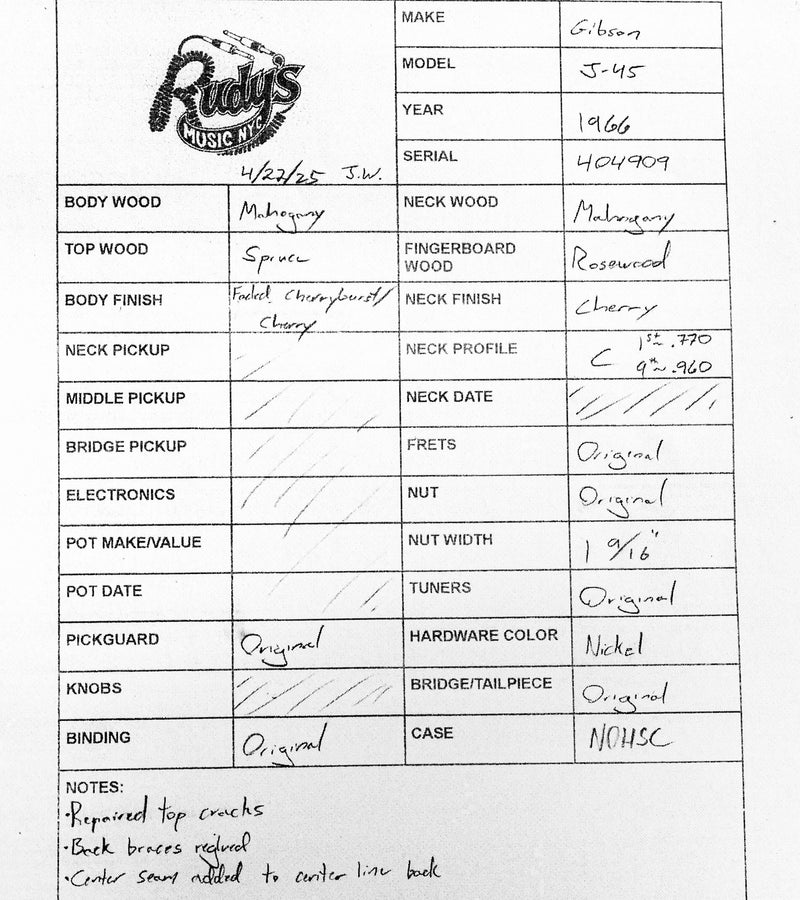 Rudy's
MUSIC NYC
4/27/25 J.W.
MAKE Gibson
MODEL J-45
YEAR 1966
SERIAL 404909
BODY WOOD Mahogany NECK WOOD Mahogany
TOP WOOD Spruce FINGERBOARD WOOD Rosewood
BODY FINISH Faded Cherryburst/ Cherry NECK FINISH Cherry
NECK PICKUP NECK PROFILE C 1st ~ .770 9th ~ .960
MIDDLE PICKUP NECK DATE
BRIDGE PICKUP FRETS Original
ELECTRONICS NUT Original
POT MAKE/VALUE NUT WIDTH 1 9/16"
POT DATE TUNERS Original
PICKGUARD Original HARDWARE COLOR Nickel
KNOBS BRIDGE/TAILPIECE Original
BINDING Original CASE NOHSC
NOTES:
•Repaired top cracks
•Back braces reglued
•Center seam added to center line back